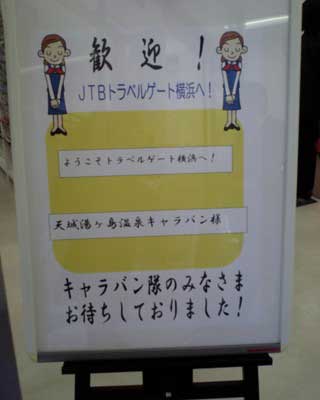 歓迎!
JTBトラベルゲート横浜へ!
ようこそトラベルゲート横浜へ!
天城湯ヶ島温泉キャラバン様
キャラバン隊のみなさま
お待ちしておりました!